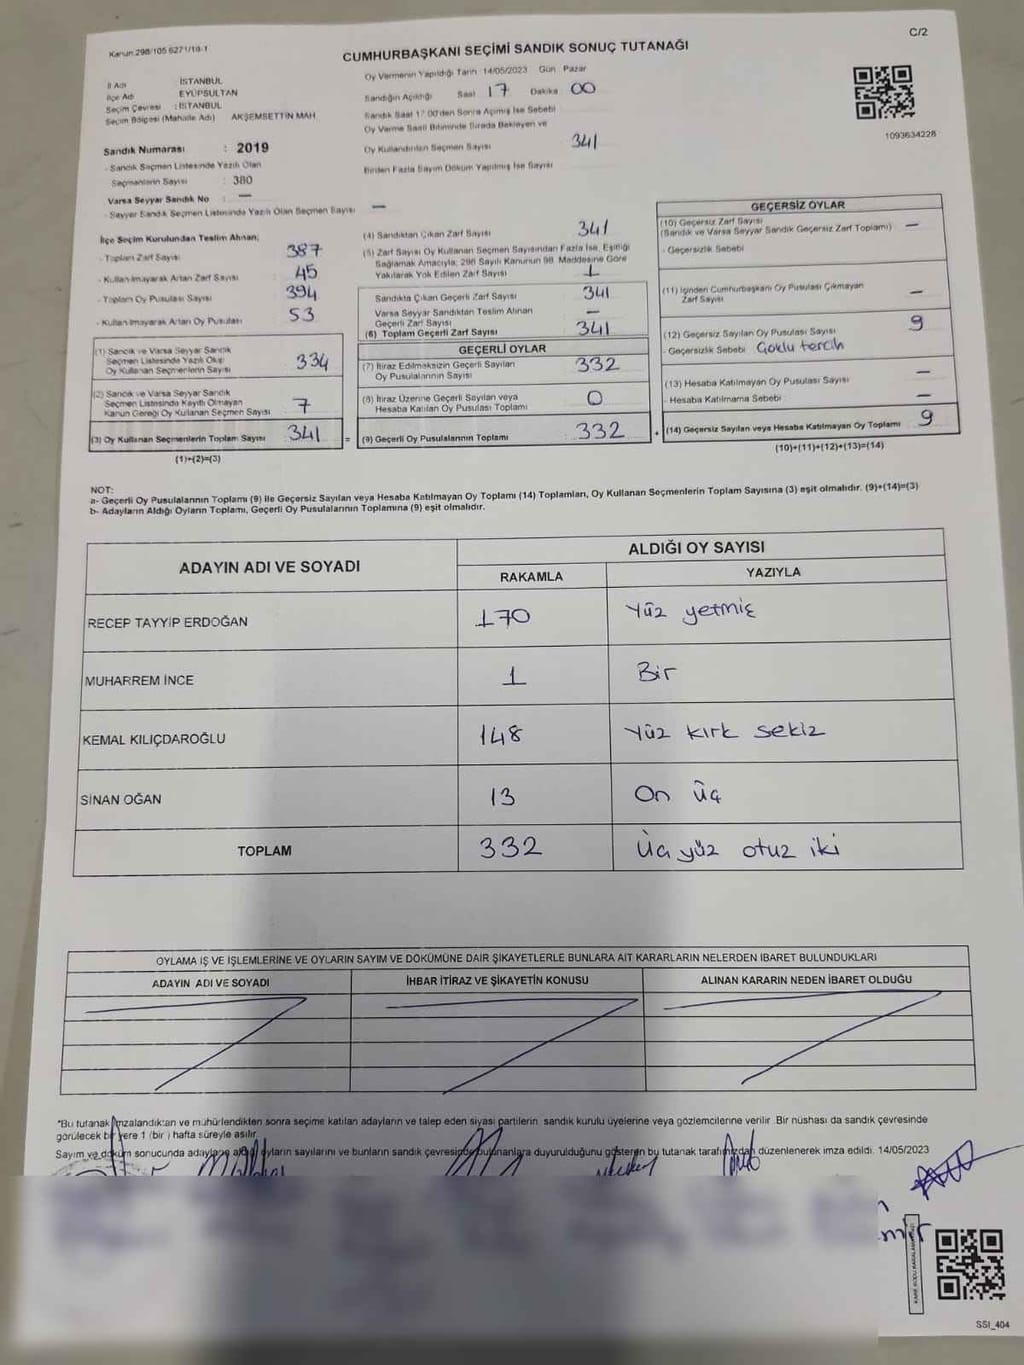 Kanun:298/105 6271/19-1
C/2
CUMHURBAŞKANI SEÇİMİ SANDIK SONUÇ TUTANAĞI
İl Adı : İSTANBUL
İlçe Adı EYÜPSULTAN
Seçim Çevresi : İSTANBUL
Seçim Bölgesi (Mahalle Adı) AKŞEMSETTİN MAH.
Oy Vermenin Yapıldığı Tarih 14/05/2023 Gün Pazar
Sandığın Açıldığı Saat 17 Dakika 00
Sandık Saat 17:00'den Sonra Açılmış İse Sebebi
Oy Verme Saati Bitiminde Sırada Bekleyen ve
Oy Kullandırılan Seçmen Sayısı 341
Birden Fazla Sayım Döküm Yapılmış İse Sayısı
1093634228
Sandık Numarası : 2019
- Sandık Seçmen Listesinde Yazılı Olan
Seçmenlerin Sayısı : 380
Varsa Seyyar Sandık No : —
- Seyyar Sandık Seçmen Listesinde Yazılı Olan Seçmen Sayısı —
İlçe Seçim Kurulundan Teslim Alınan;
- Toplam Zarf Sayısı 387
- Kullanılmayarak Artan Zarf Sayısı 45
- Toplam Oy Pusulası Sayısı 394
- Kullanılmayarak Artan Oy Pusulası 53
(1) Sandık ve Varsa Seyyar Sandık
Seçmen Listesinde Yazılı Olup
Oy Kullanan Seçmenlerin Sayısı 334
(2) Sandık ve Varsa Seyyar Sandık
Seçmen Listesinde Kayıtlı Olmayan
Kanun Gereği Oy Kullanan Seçmen Sayısı 7
(3) Oy Kullanan Seçmenlerin Toplam Sayısı 341 =
(1)+(2)=(3)
(4) Sandıktan Çıkan Zarf Sayısı 341
(5) Zarf Sayısı Oy Kullanan Seçmen Sayısından Fazla İse, Eşitliği
Sağlamak Amacıyla; 298 Sayılı Kanunun 98. Maddesine Göre
Yakılarak Yok Edilen Zarf Sayısı 1
Sandıkta Çıkan Geçerli Zarf Sayısı 341
Varsa Seyyar Sandıktan Teslim Alınan
Geçerli Zarf Sayısı —
(6) Toplam Geçerli Zarf Sayısı 341
GEÇERLİ OYLAR
(7) İtiraz Edilmeksizin Geçerli Sayılan
Oy Pusulalarının Sayısı 332
(8) İtiraz Üzerine Geçerli Sayılan veya
Hesaba Katılan Oy Pusulası Toplamı 0
(9) Geçerli Oy Pusulalarının Toplamı 332 +
GEÇERSİZ OYLAR
(10) Geçersiz Zarf Sayısı
(Sandık ve Varsa Seyyar Sandık Geçersiz Zarf Toplamı) —
- Geçersizlik Sebebi
(11) İçinden Cumhurbaşkanı Oy Pusulası Çıkmayan
Zarf Sayısı —
(12) Geçersiz Sayılan Oy Pusulası Sayısı 9
- Geçersizlik Sebebi Çoklu tercih
(13) Hesaba Katılmayan Oy Pusulası Sayısı —
- Hesaba Katılmama Sebebi —
(14) Geçersiz Sayılan veya Hesaba Katılmayan Oy Toplamı 9
(10)+(11)+(12)+(13)=(14)
NOT:
a- Geçerli Oy Pusulalarının Toplamı (9) ile Geçersiz Sayılan veya Hesaba Katılmayan Oy Toplamı (14) Toplamları, Oy Kullanan Seçmenlerin Toplam Sayısına (3) eşit olmalıdır. (9)+(14)=(3)
b- Adayların Aldığı Oyların Toplamı, Geçerli Oy Pusulalarının Toplamına (9) eşit olmalıdır.
ADAYIN ADI VE SOYADI
ALDIĞI OY SAYISI
RAKAMLA YAZIYLA
RECEP TAYYİP ERDOĞAN 170 Yüz yetmiş
MUHARREM İNCE 1 Bir
KEMAL KILIÇDAROĞLU 148 Yüz kırk sekiz
SİNAN OĞAN 13 On üç
TOPLAM 332 Üç yüz otuz iki
OYLAMA İŞ VE İŞLEMLERİNE VE OYLARIN SAYIM VE DÖKÜMÜNE DAİR ŞİKAYETLERLE BUNLARA AİT KARARLARIN NELERDEN İBARET BULUNDUKLARI
ADAYIN ADI VE SOYADI İHBAR İTİRAZ VE ŞİKAYETİN KONUSU ALINAN KARARIN NEDEN İBARET OLDUĞU
*Bu tutanak imzalandıktan ve mühürlendikten sonra seçime katılan adayların ve talep eden siyasi partilerin sandık kurulu üyelerine veya gözlemcilerine verilir. Bir nüshası da sandık çevresinde
görülecek bir yere 1 (bir) hafta süreyle asılır.
Sayım ve döküm sonucunda adayların aldığı oyların sayılarını ve bunların sandık çevresinde bulunanlara duyurulduğunu gösteren bu tutanak tarafımızdan düzenlenerek imza edildi. 14/05/2023
SSI_404